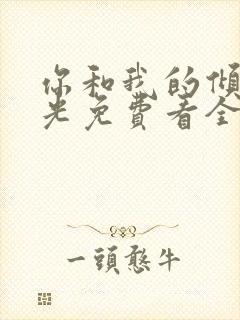 你和我的倾
光免費看全
一頭憨牛